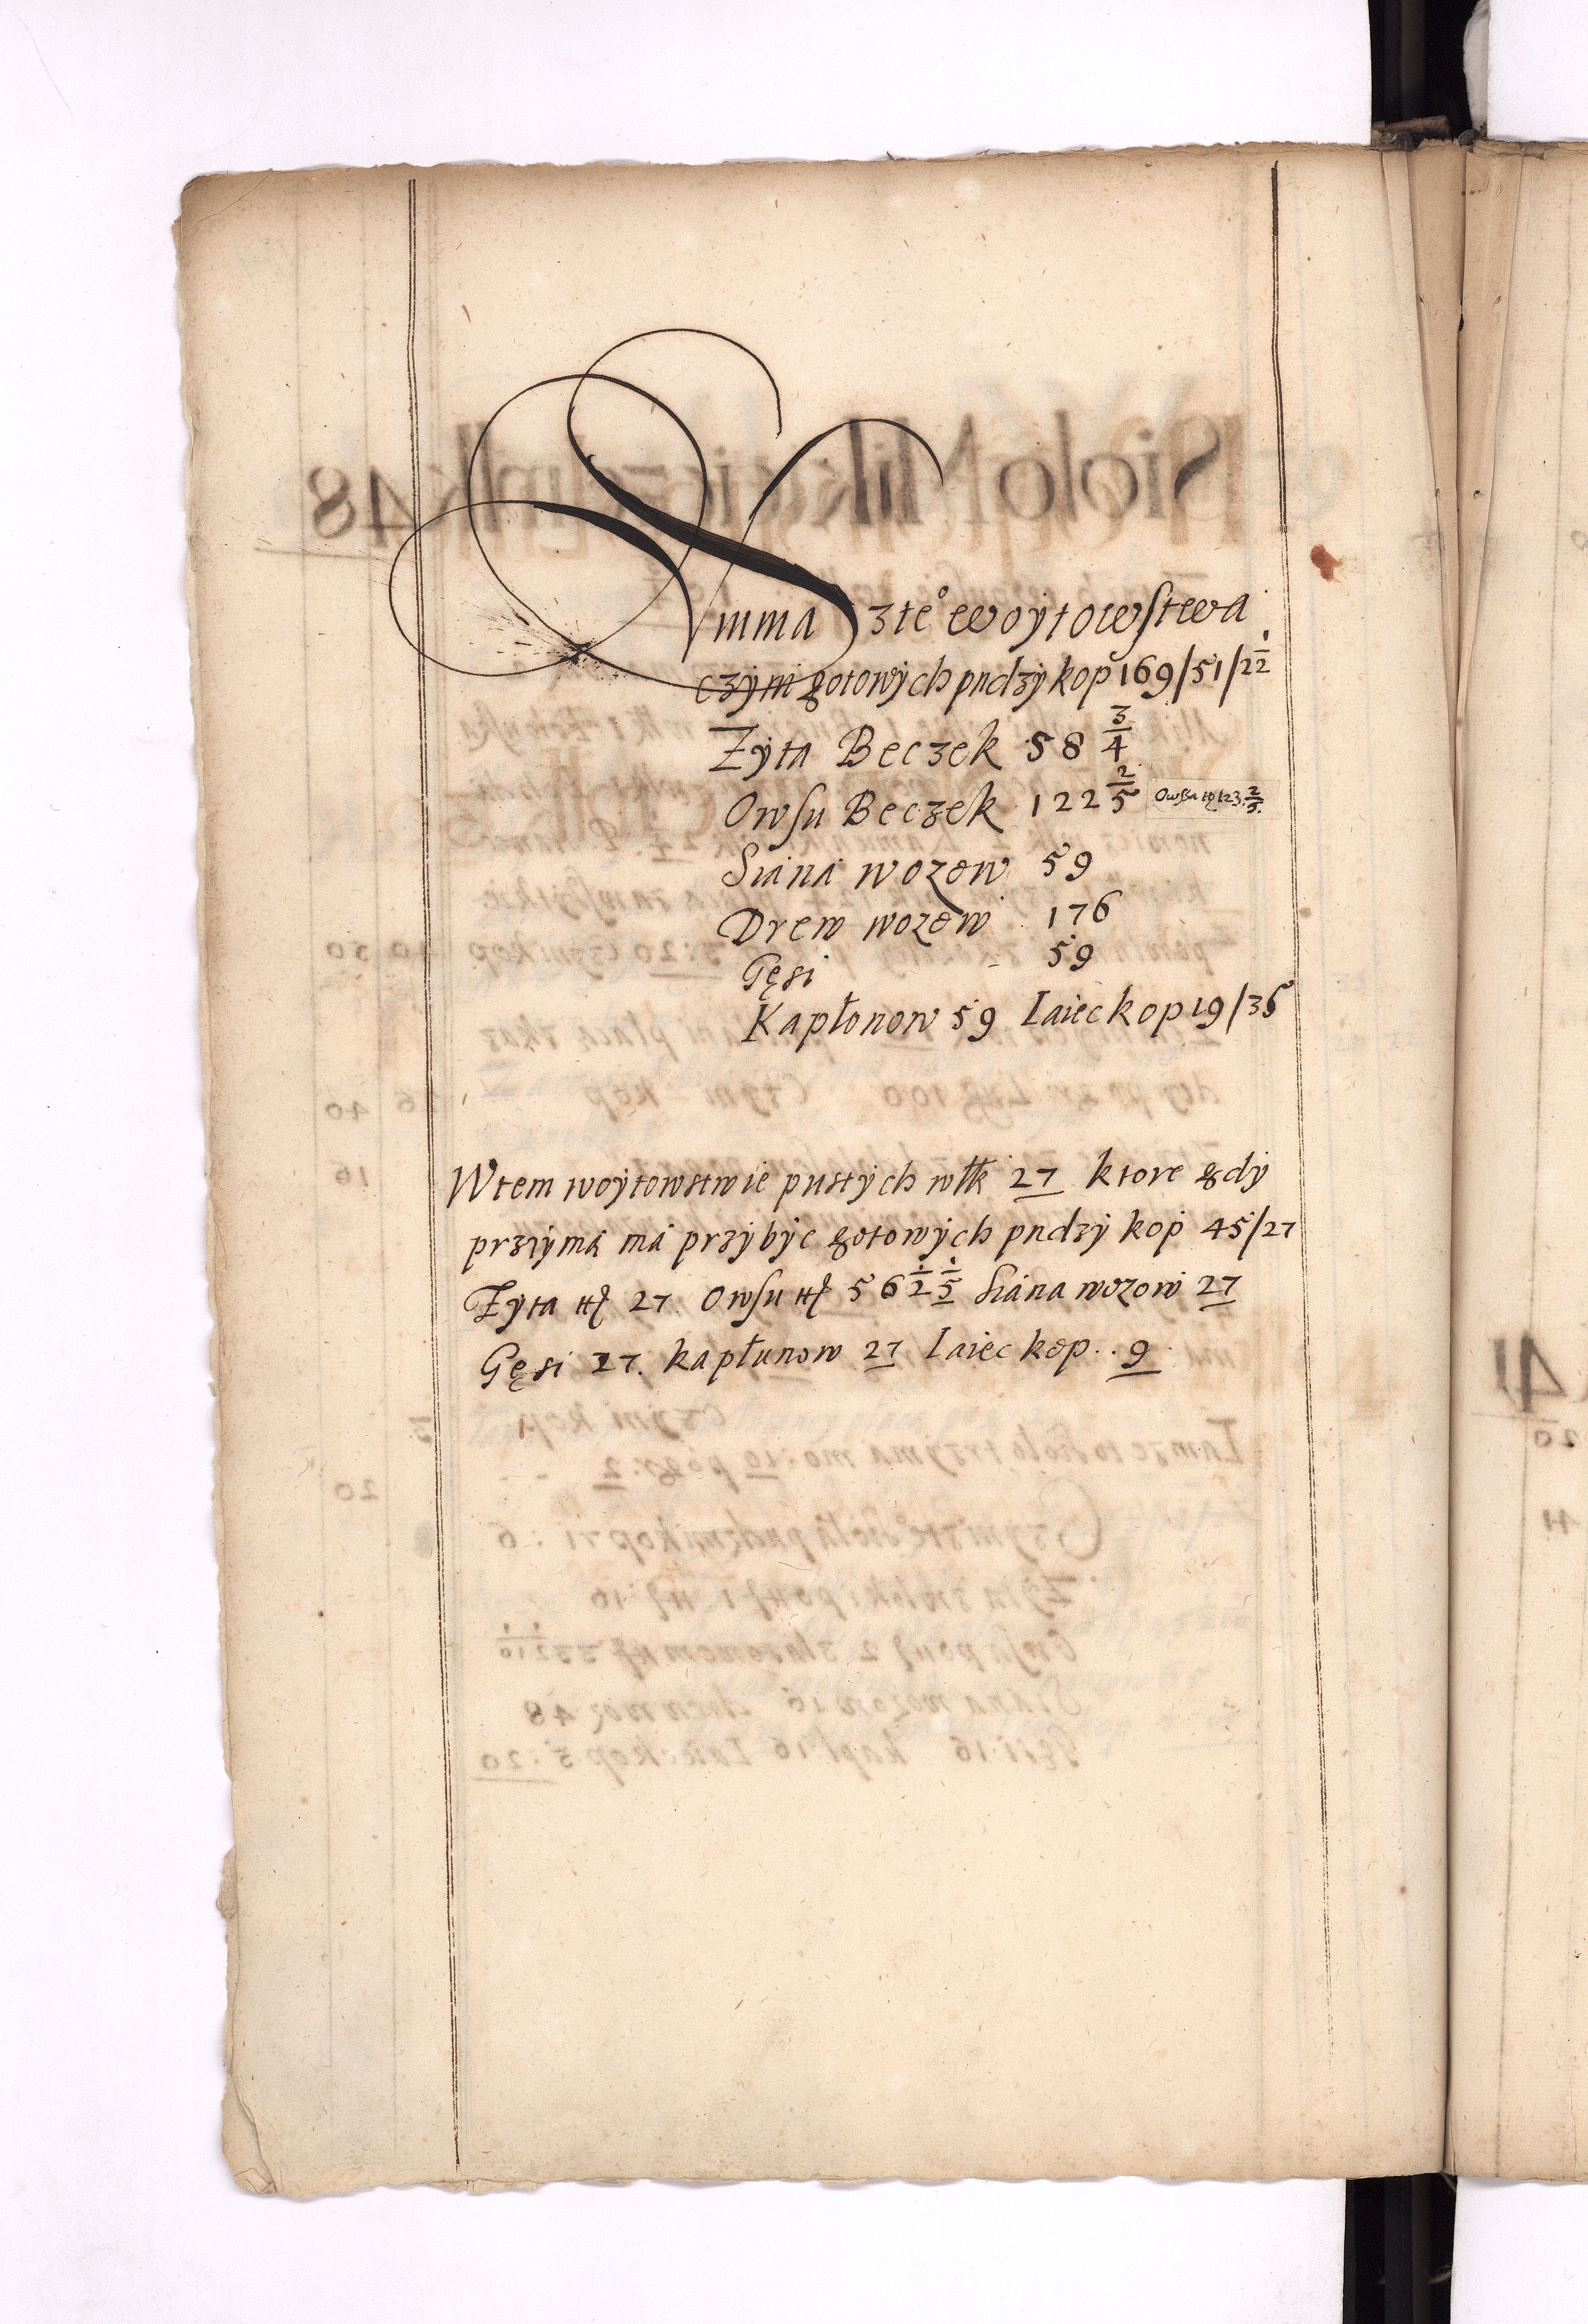 Summa z te° woytowstwa
czyni gotowych pndzy kop 169/51/2 1/2
Zyta Beczek 58 3/4
Owsu Beczek 122 2/5 Owsa tʒ 123 2/5
Siana wozow 59
Drew wozow 176
Gęsi - 59
Kapłonow 59 Iaiec kop 19/36
W tem woytowstwie pustych włk 27 ktore gdy
prziyma ma przybyc gotowych pndzy kop 45/27
Zyta tʒ 27 Owsu tʒ 56 1/2 1/5 Siana wozow 27
Gęsi 27. kapłunow 27 Iaiec kop.. 9